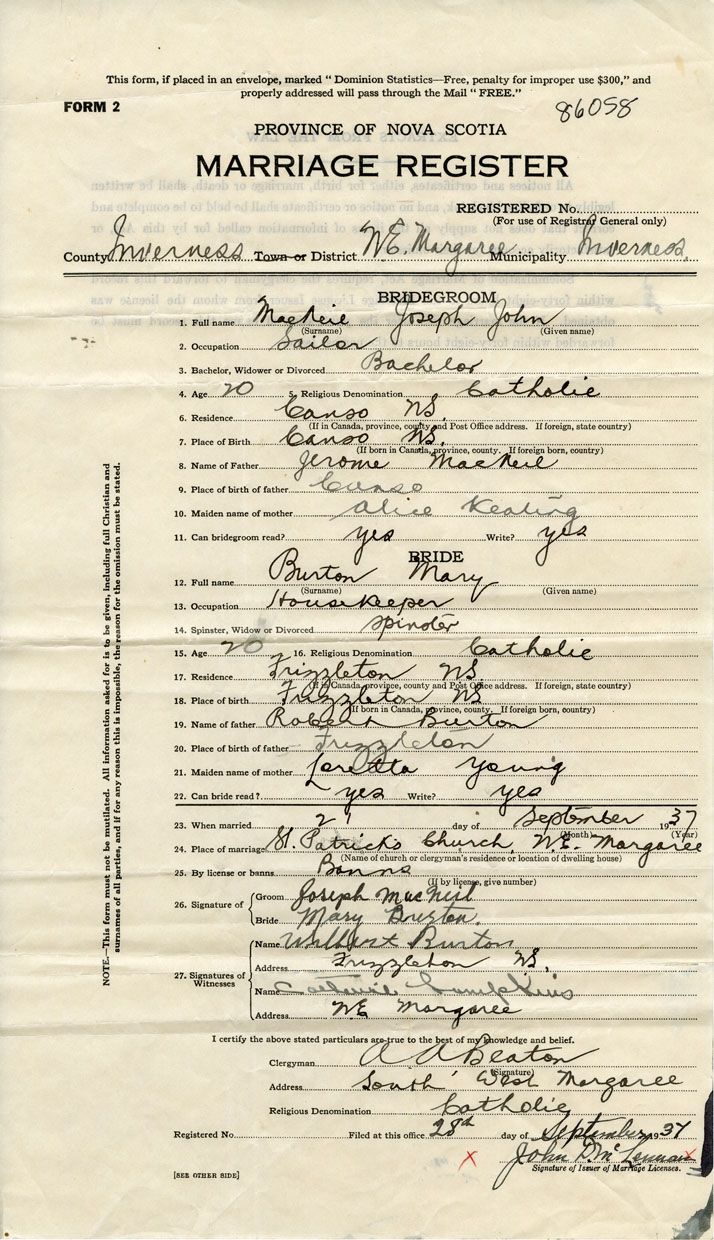 This form, if placed in an envelope, marked “ Dominion Statistics—Free, penalty for improper use $300,” and
properly addressed will pass through the Mail “ FREE.”
FORM 2
86058
PROVINCE OF NOVA SCOTIA
MARRIAGE REGISTER
REGISTERED No.
(For use of Registrar General only)
County Inverness Town or District N.E. Margaree Municipality Inverness
BRIDEGROOM
1. Full name MacNeil Joseph John
(Surname) (Given name)
2. Occupation Sailor
3. Bachelor, Widower or Divorced Bachelor
4. Age 20 5. Religious Denomination Catholic
6. Residence Canso NS.
(If in Canada, province, county and Post Office address. If foreign, state country)
7. Place of Birth Canso NS.
(If born in Canada, province, county. If foreign born, country)
8. Name of Father Jerome MacNeil
9. Place of birth of father Canso
10. Maiden name of mother Alice Keating
11. Can bridegroom read? yes Write? yes
BRIDE
12. Full name Burton Mary
(Surname) (Given name)
13. Occupation Housekeeper
14. Spinster, Widow or Divorced Spinster
15. Age 20 16. Religious Denomination Catholic
17. Residence Frizzleton NS
(If in Canada, province, county and Post Office address. If foreign, state country)
18. Place of birth Frizzleton NS
(If born in Canada, province, county. If foreign born, country)
19. Name of father Robert Burton
20. Place of birth of father Frizzleton
21. Maiden name of mother Loretta Young
22. Can bride read? yes Write? yes
23. When married 21 day of September 1937
(Month) (Year)
24. Place of marriage St. Patrick's Church, N.E. Margaree
(Name of church or clergyman's residence or location of dwelling house)
25. By license or banns Banns
(If by license, give number)
26. Signature of Groom Joseph MacNeil
Bride Mary Burton.
27. Signatures of Witnesses
Name Wilbert Burton
Address Frizzleton NS.
Name Tompkins
Address NE Margaree
I certify the above stated particulars are true to the best of my knowledge and belief.
Clergyman A A Beaton
(Signature)
Address South West Margaree
Religious Denomination Catholic
Registered No. Filed at this office 28th day of September 1937
John D. McLennan
Signature of Issuer of Marriage Licenses.
[SEE OTHER SIDE]
NOTE.—This form must not be mutilated. All information asked for is to be given, including full Christian and
surnames of all parties, and if for any reason this is impossible, the reason for the omission must be stated.